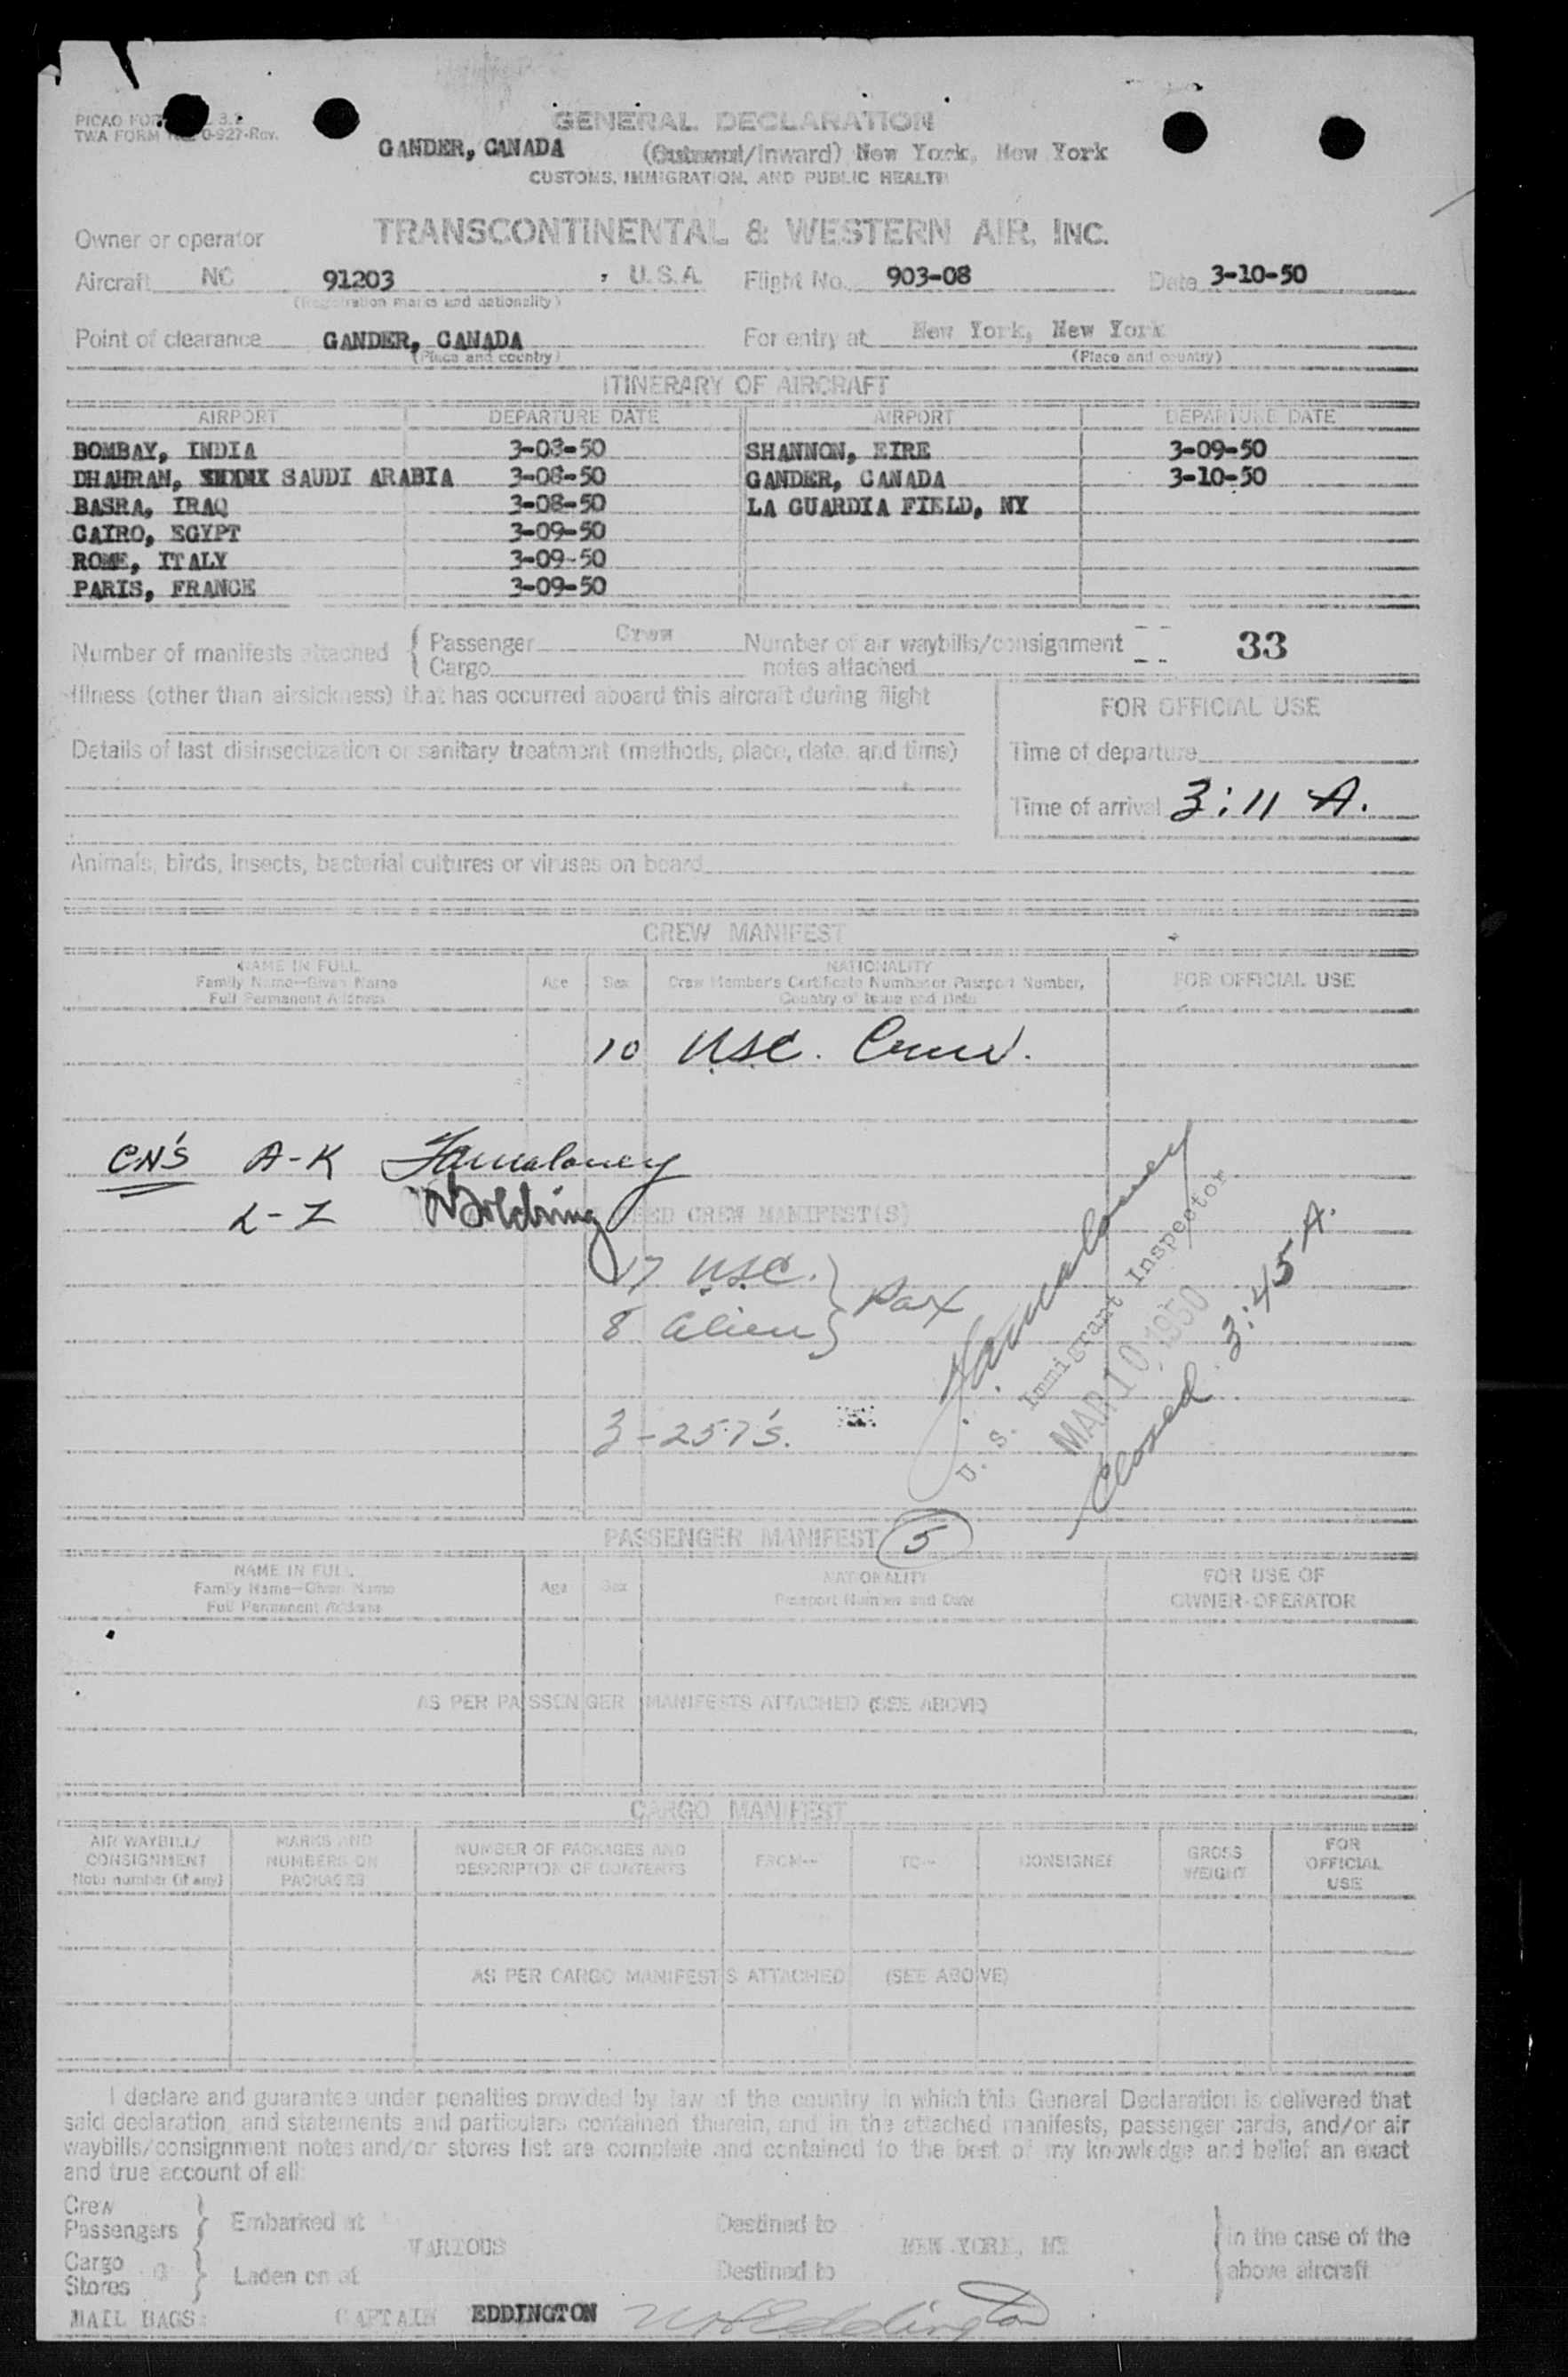 PICAO FOR 3.2
TWA FORM 0-927-Rev.
GENERAL DECLARATION
GANDER, CANADA (Outward/Inward) New York, New York
CUSTOMS, IMMIGRATION, AND PUBLIC HEALTH
Owner or operator TRANSCONTINENTAL & WESTERN AIR, INC.
Aircraft NC 91203 , U.S.A. Flight No. 903-08 Date 3-10-50
(Registration marks and nationality)
Point of clearance GANDER, CANADA For entry at New York, New York
(Place and country) (Place and country)
ITINERARY OF AIRCRAFT
AIRPORT DEPARTURE DATE AIRPORT DEPARTURE DATE
BOMBAY, INDIA 3-08-50 SHANNON, EIRE 3-09-50
DHAHRAN, SAUDI ARABIA 3-08-50 GANDER, CANADA 3-10-50
BASRA, IRAQ 3-08-50 LA GUARDIA FIELD, NY
CAIRO, EGYPT 3-09-50
ROME, ITALY 3-09-50
PARIS, FRANCE 3-09-50
Number of manifests attached { Passenger Crew Number of air waybills/consignment -- 33
Cargo notes attached --
Illness (other than airsickness) that has occurred aboard this aircraft during flight
FOR OFFICIAL USE
Details of last disinsectization or sanitary treatment (methods, place, date, and time)
Time of departure
Time of arrival 3:11 A.
Animals, birds, insects, bacterial cultures or viruses on board
CREW MANIFEST
NAME IN FULL
Family Name—Given Name
Full Permanent Address
Age Sex
NATIONALITY
Crew Member's Certificate Number or Passport Number,
Country of Issue and Date
FOR OFFICIAL USE
10 USC. Crew.
CN'S A-K Famaloney
L-Z
CREW MANIFEST(S)
17 USC. } Pax
8 Alien }
3-257's.
Famaloney
U. S. Immigrant Inspector
MAR 10 1950
Closed 3:45 A.
PASSENGER MANIFEST 5
NAME IN FULL
Family Name—Given Name
Full Permanent Address
Age Sex
NATIONALITY
Passport Number and Date
FOR USE OF
OWNER-OPERATOR
AS PER PASSENGER MANIFESTS ATTACHED (SEE ABOVE)
CARGO MANIFEST
AIR WAYBILL/
CONSIGNMENT
Note number (if any)
MARKS AND
NUMBERS ON
PACKAGES
NUMBER OF PACKAGES AND
DESCRIPTION OF CONTENTS
FROM— TO— CONSIGNEE
GROSS
WEIGHT
FOR
OFFICIAL
USE
AS PER CARGO MANIFESTS ATTACHED (SEE ABOVE)
I declare and guarantee under penalties provided by law of the country in which this General Declaration is delivered that
said declaration and statements and particulars contained therein, and in the attached manifests, passenger cards, and/or air
waybills/consignment notes and/or stores list are complete and contained to the best of my knowledge and belief an exact
and true account of all:
Crew
Passengers } Embarked at VARIOUS Destined to NEW YORK, NY } in the case of the
Cargo
Stores } Laden on at Destined to above aircraft
MAIL BAGS: CAPTAIN EDDINGTON Eddington